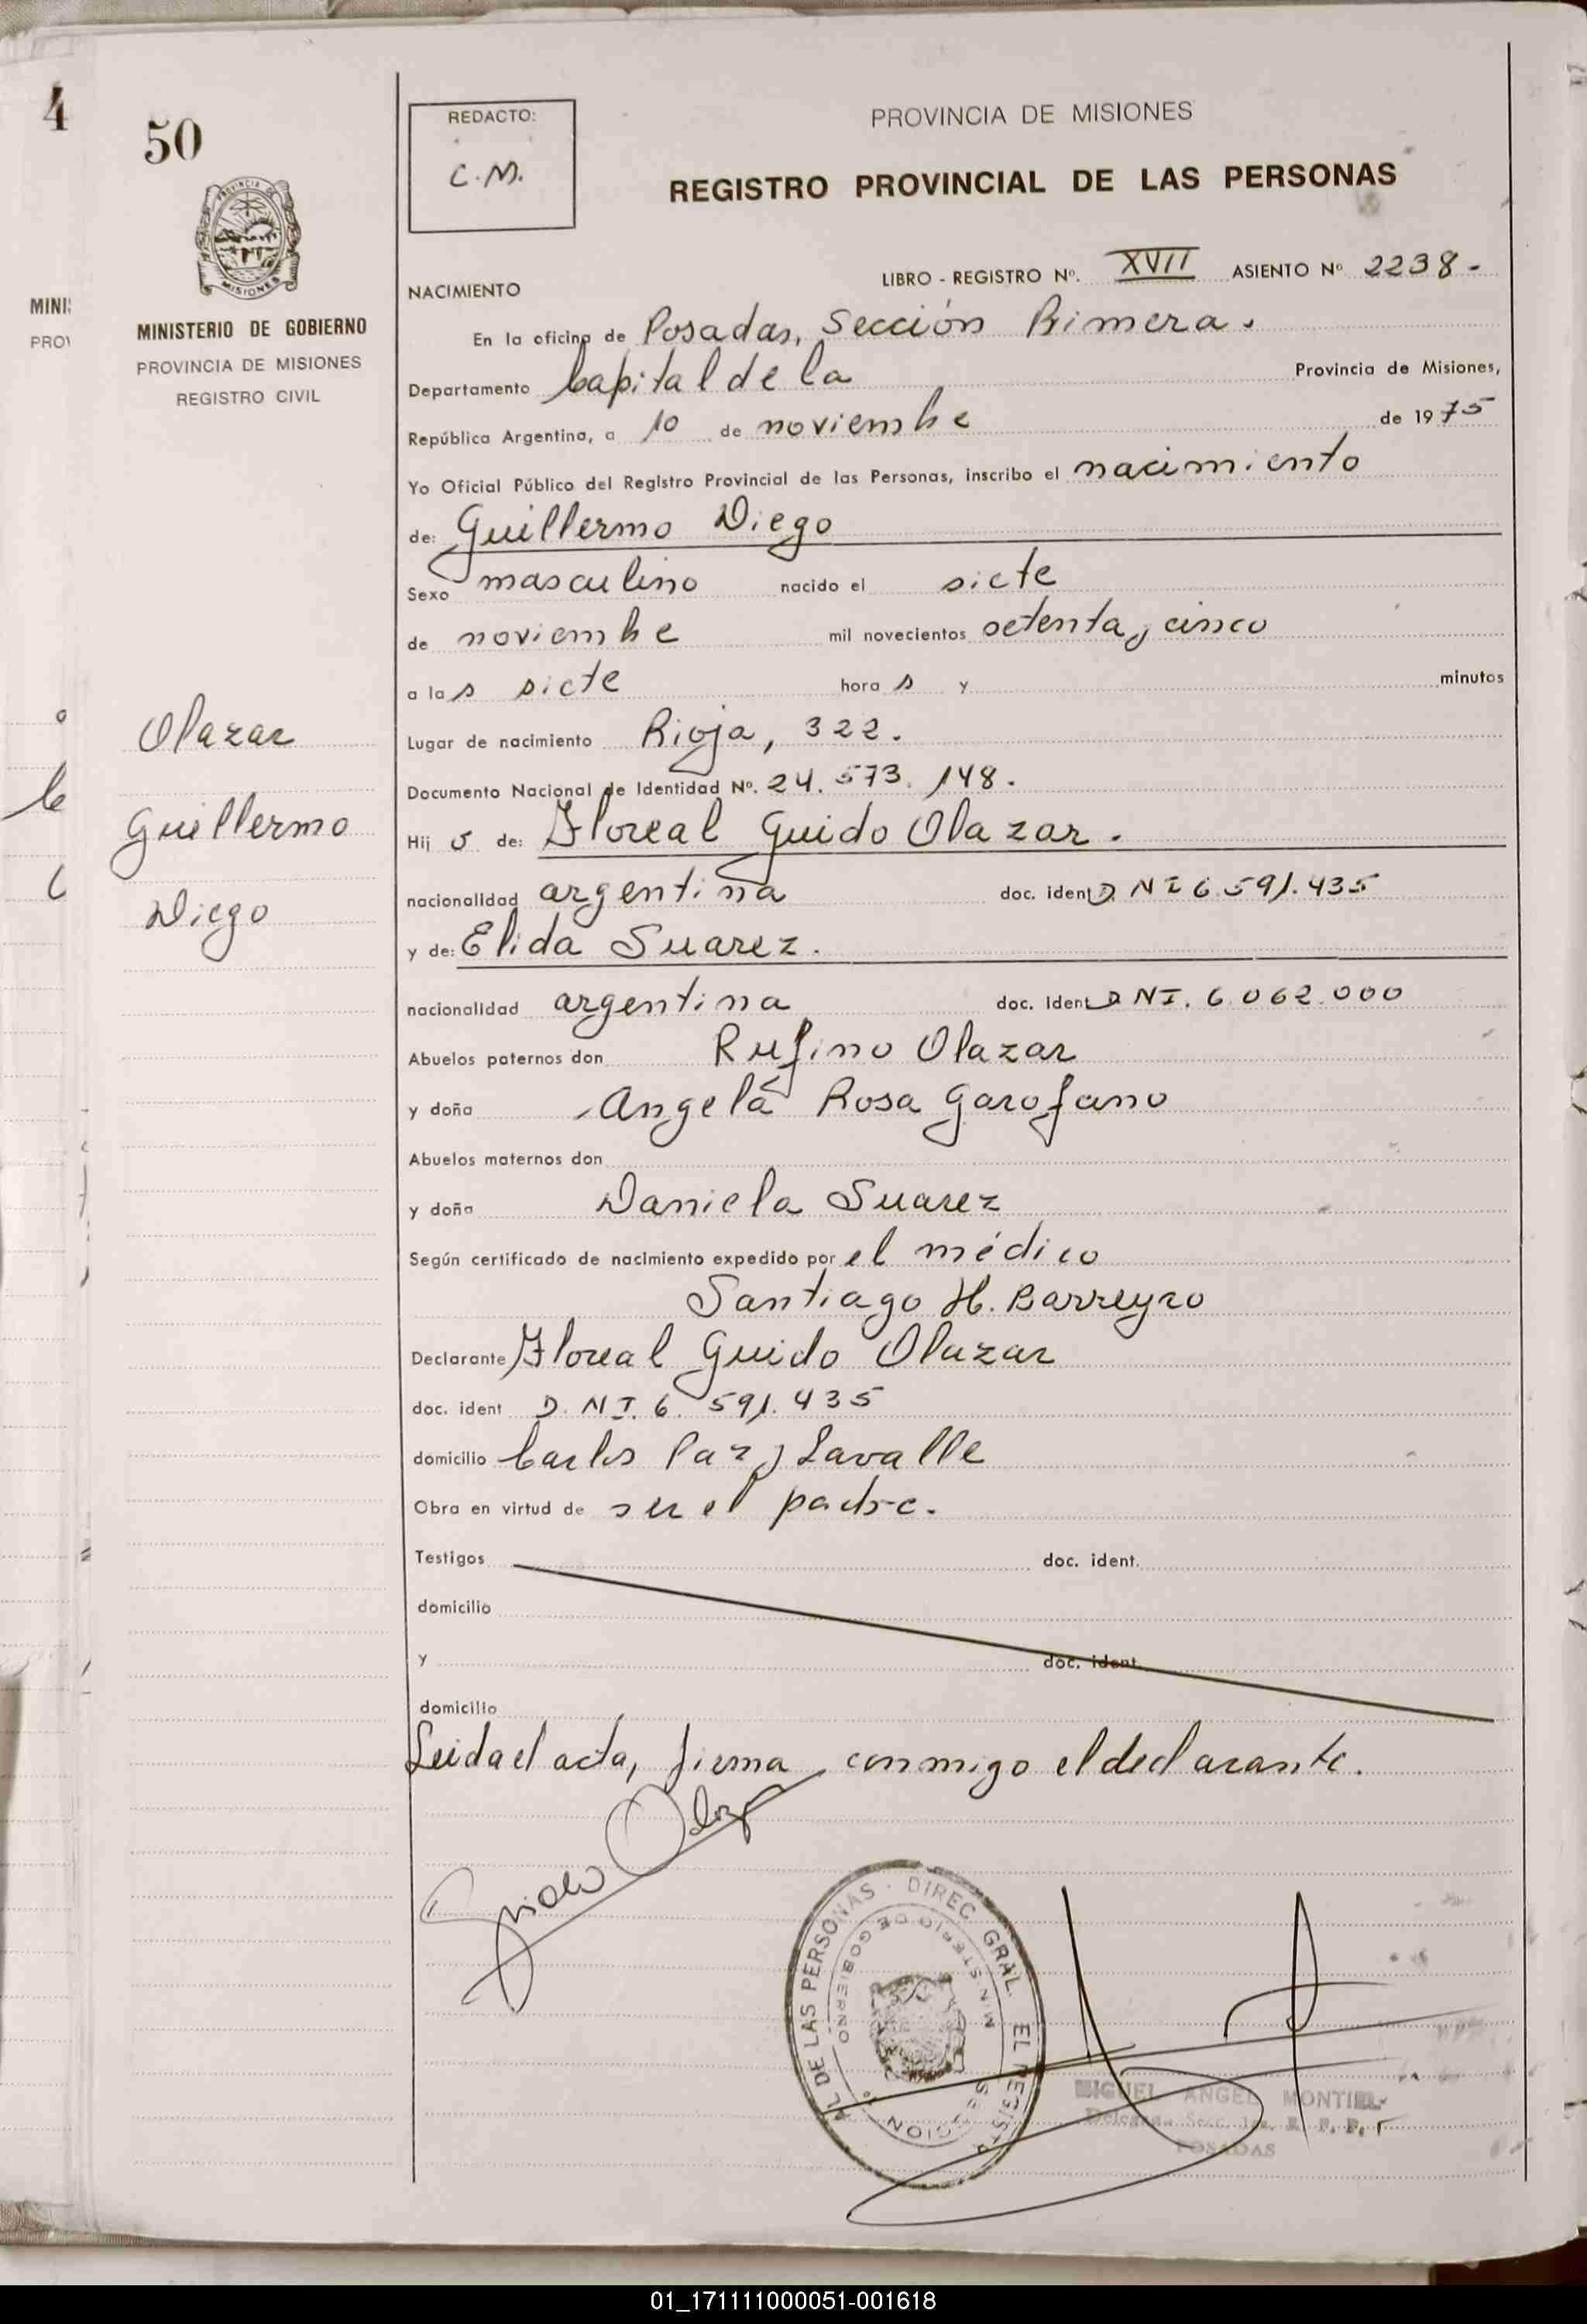 4
50
MINI
PROV
MINISTERIO DE GOBIERNO
PROVINCIA DE MISIONES
REGISTRO CIVIL
Olazar
Guillermo
Diego
REDACTO:
C.M.
PROVINCIA DE MISIONES
REGISTRO PROVINCIAL DE LAS PERSONAS
LIBRO - REGISTRO Nº. XVII ASIENTO Nº 2238-
NACIMIENTO
En la oficina de Posadas, Sección Primera.
Departamento Capital de la Provincia de Misiones,
República Argentina, a 10 de noviembre de 1975
Yo Oficial Público del Registro Provincial de las Personas, inscribo el nacimiento
de: Guillermo Diego
Sexo masculino nacido el siete
de noviembre mil novecientos setenta y cinco
a las siete horas y minutos
Lugar de nacimiento Rioja, 322.
Documento Nacional de Identidad Nº. 24.573.148.
Hijo de: Floreal Guido Olazar.
nacionalidad argentina doc. ident D NI 6.591.435
y de: Elida Suarez.
nacionalidad argentina doc. ident D NI. 6.062.000
Abuelos paternos don Rufino Olazar
y doña Angela Rosa Garofano
Abuelos maternos don
y doña Daniela Suarez
Según certificado de nacimiento expedido por el médico
Santiago H. Barreyro
Declarante Floreal Guido Olazar
doc. ident D. NI. 6.591.435
domicilio Carlos Paz y Lavalle
Obra en virtud de ser el padre.
Testigos doc. ident.
domicilio
y doc. ident.
domicilio
Leida el acta, firma conmigo el declarante.
Guido Olazar
DIREC. GRAL. EL REGIST AL DE LAS PERSONAS
MINISTERIO DE GOBIERNO
MIGUEL ANGEL MONTIEL
POSADAS
01_171111000051-001618